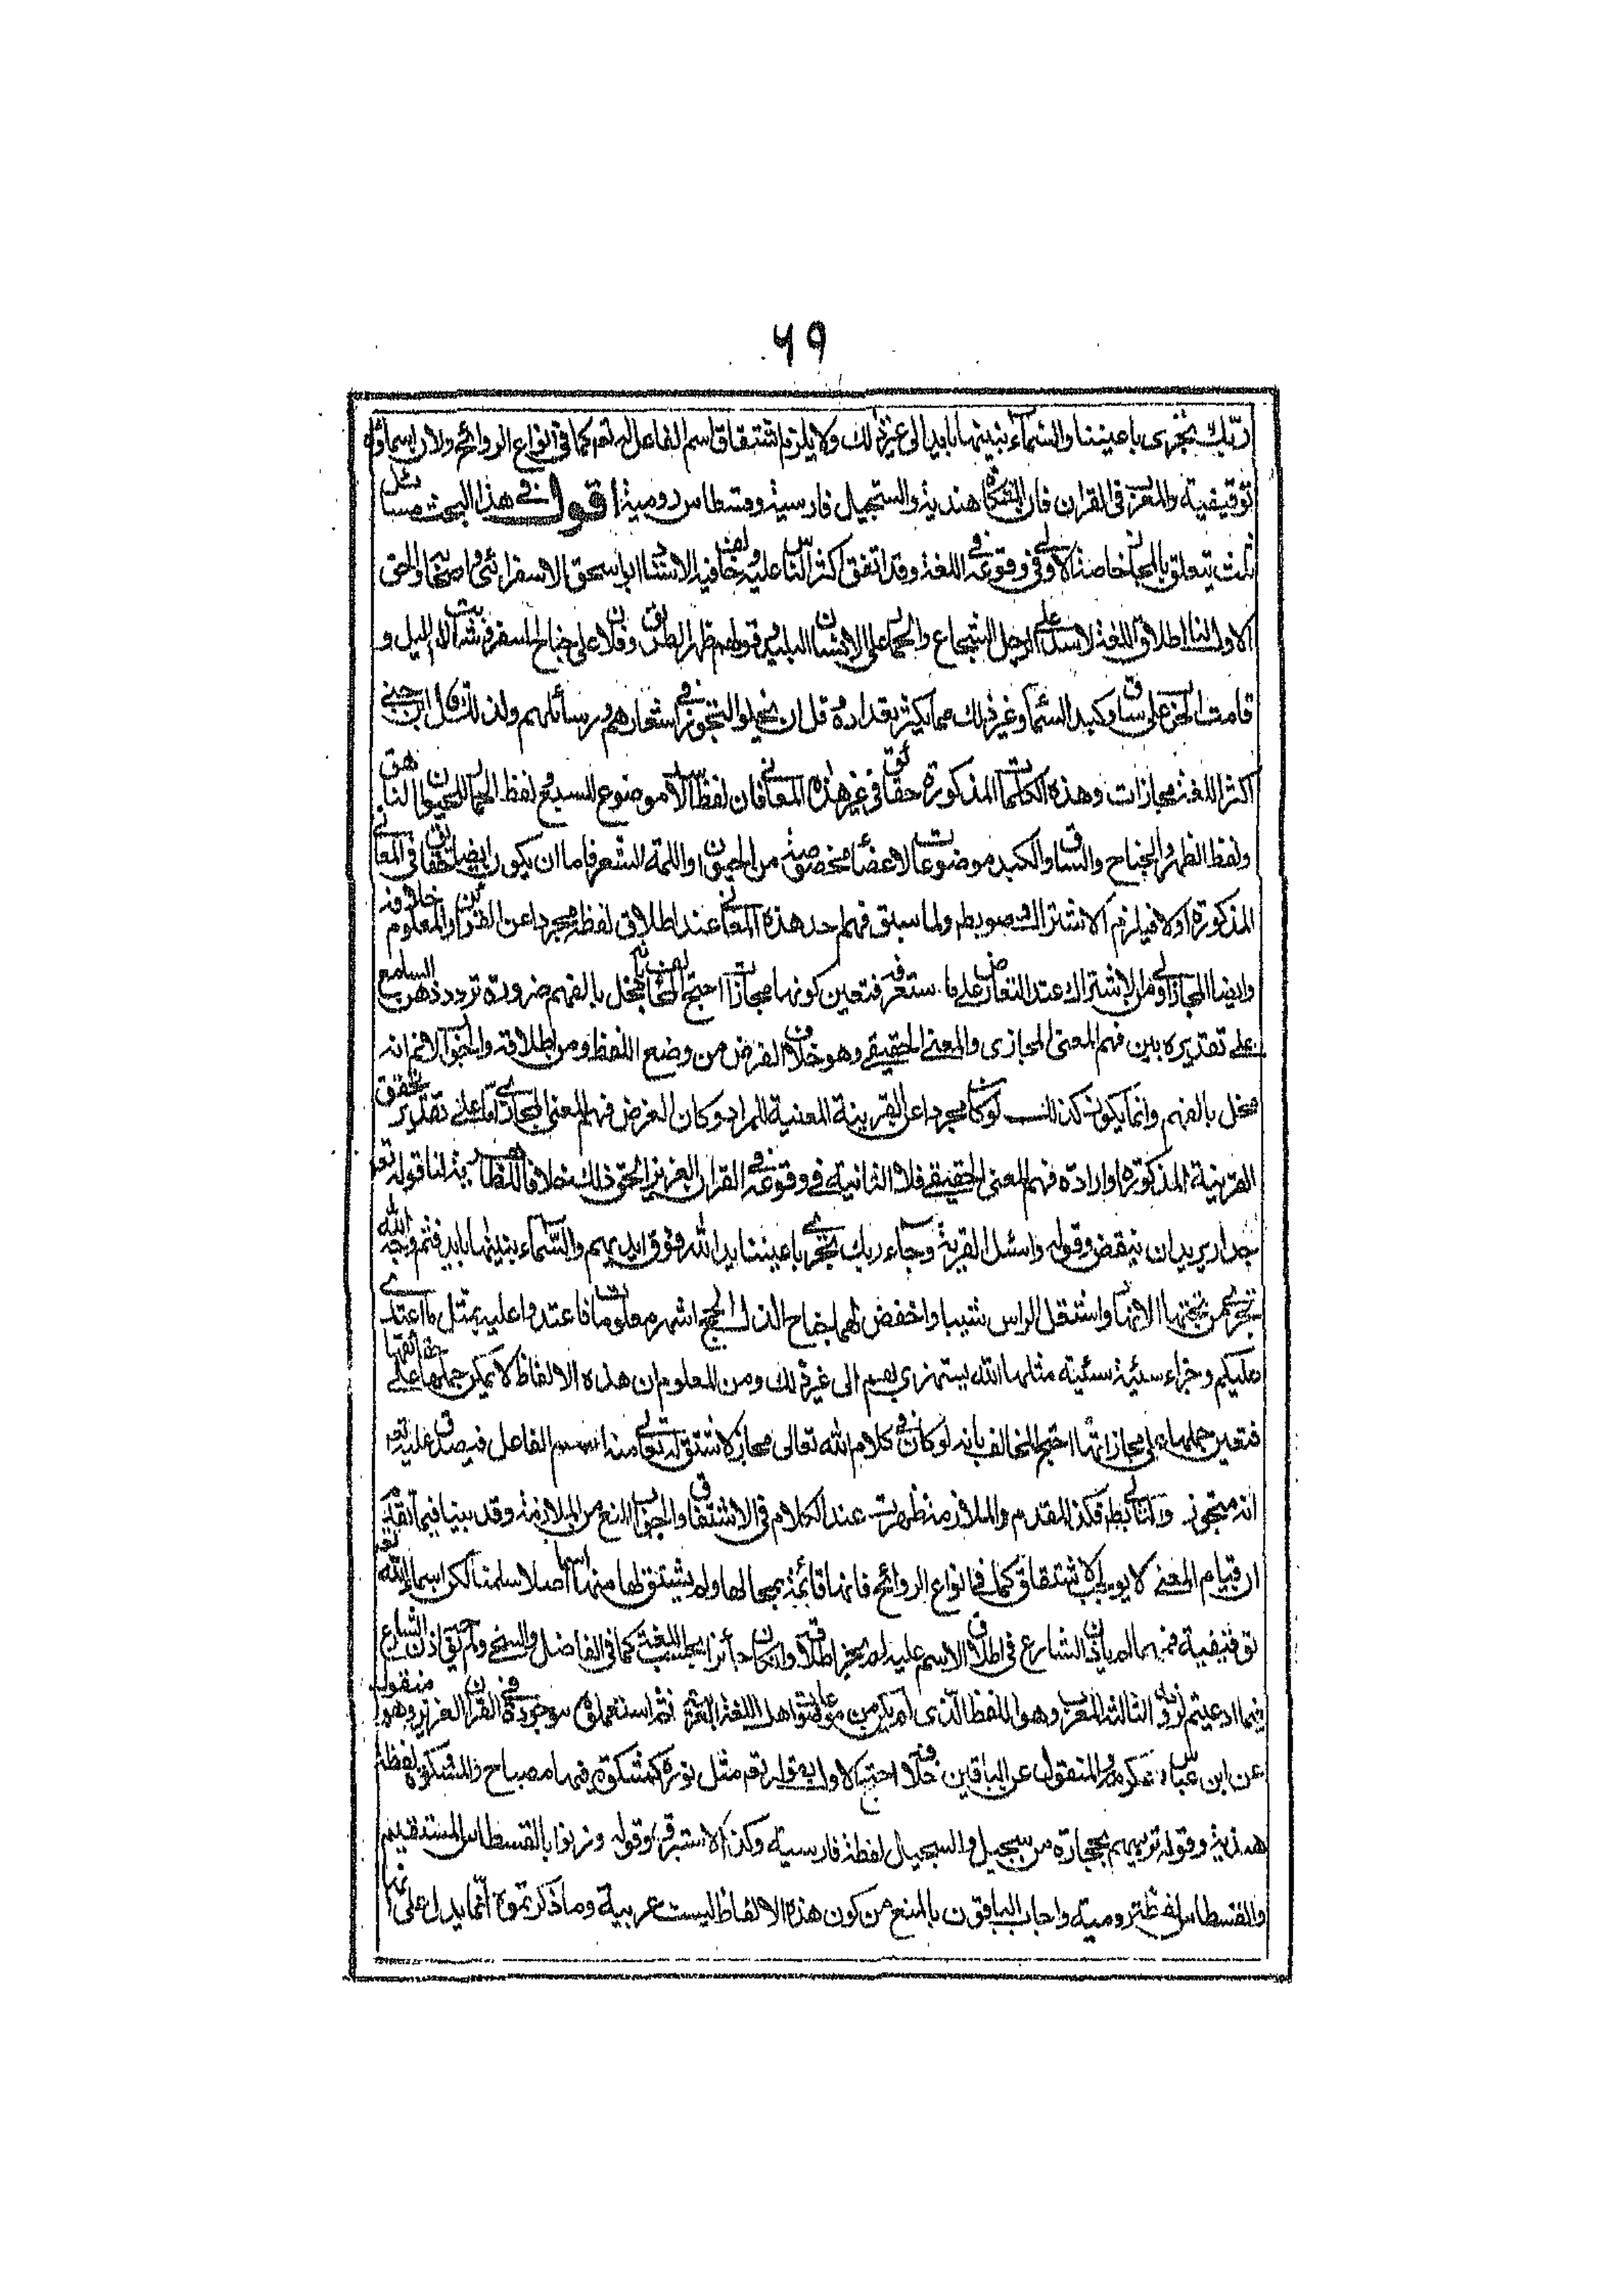 ٦٩
ربك تجرى باعيننا والسماء بنيناها بايد الى غير ذلك ولا يلزم اشتقاق اسم الفاعل له تعم كما فى انواع الروائح ولان اسماؤه
توقيفية والمعرب فى القران فان المشكاة هندية والسجيل فارسية وقسطاس رومية اقول فى هذا البحث مسائل
ثلث يتعلق بالمجاز خاصة الاولى فى وقوعه فى اللغة وقد اتفق اكثر الناس عليه وخالف فيه الاستاد ابو اسحق الاسفرائنى واصحابه والحق
الاول لنا اطلاق اللغة الاسد على الرجل الشجاع والحمار على الانسان البليد وقولهم ظهر الطريق وفلان على جناح السفر وشابت لمة الليل و
قامت الحرب على ساق وكبد السماء وغير ذلك مما يكثر تعداده قل ان يخلو التجوز فى اشعارهم ورسائلهم ولذلك قال ابن جنى
اكثر اللغة مجازات وهذه الكلمات المذكورة حقائق فى غير هذه المعانى فان لفظ الاسد موضوع للسبع ولفظ الحمار للحيوان الناهق
ولفظ الظهر والجناح والساق والكبد موضوعات لاعضاء مخصوصة من الحيوان واللمة الشعر فاما ان يكون ايضا حقائق فى المعانى
المذكورة اولا فيلزم الاشتراك وهو بط ولما سبق فهم احد هذه المعانى عند اطلاق لفظه مجردا عن القرائن والمعلوم خلافه
وايضا المجاز اولى من الاشتراك عند التعارض على ما ستعرفه فتعين كونها مجازات احتج المخالف بانه مخل بالفهم ضرورة تردد ذهن السامع
على تقديره بين فهم المعنى المجازى والمعنى الحقيقى وهو خلاف الغرض من وضع اللفظ ومن اطلاقه والجواب لا نم انه
مخل بالفهم وانما يكون كذلك لو كان مجردا عن القرينة المعنية للمراد وكان الغرض فهم المعنى المجازى اما على تقدير تحقق
القرينة المذكورة او ارادة فهم المعنى الحقيقى فلا الثانية فى وقوعه فى القران العزيز الحق ذلك خلافا للظاهرية لنا قوله تعم
جدارا يريد ان ينقض وقوله واسئل القرية وجاء ربك تجرى باعيننا يد الله فوق ايديهم والسماء بنيناها بايد فثم وجه الله
تجرى من تحتها الانهار واشتعل الراس شيبا واخفض لهما جناح الذل الحج اشهر معلومات فاعتدوا عليه بمثل ما اعتدى
عليكم وجزاء سيئة سيئة مثلها الله يستهزئ بهم الى غير ذلك ومن المعلوم ان هذه الالفاظ لا يمكن حملها على حقائقها
فتعين حملها على مجازاتها احتج المخالف بانه لو كان فى كلام الله تعالى مجاز لاشتق له تعالى منه اسم الفاعل فيصدق عليه تعم
انه متجوز والتالى بط فكذا المقدم والملازمة ظهرت عند الكلام فى الاشتقاق والجواب المنع من الملازمة وقد بينا فيما تقدم
ان قيام المعنى لا يوجب الاشتقاق كما فى انواع الروائح فانها قائمة بمحالها ولم يشتق لها منها اسماء اصلا سلمنا لكن اسماء الله تعم
توقيفية فمهما لم ياذن الشارع فى اطلاق الاسم عليه لم يجز اطلاقه وان كان جائزا بحسب اللغة كما فى الفاضل والسخى ولم يتحقق اذن الشارع
فيما ادعيتم لزومه الثالثة المعرب وهو اللفظ الذى لم يكن من موضوعات اهل اللغة العربية ثم استعملوه موجود فى القران العزيز وهو منقول
عن ابن عباس وعكرمة والمنقول عن الباقين خلافه احتج الاولون بقوله تعم مثل نوره كمشكوة فيها مصباح والمشكوة لفظة
هندية وقوله ترميهم بحجارة من سجيل والسجيل لفظة فارسية وكذا الاستبرق وقوله وزنوا بالقسطاس المستقيم
والقسطاس لفظة رومية واجاب الباقون بالمنع من كون هذه الالفاظ ليست عربية وما ذكرتموه انما يدل على انها